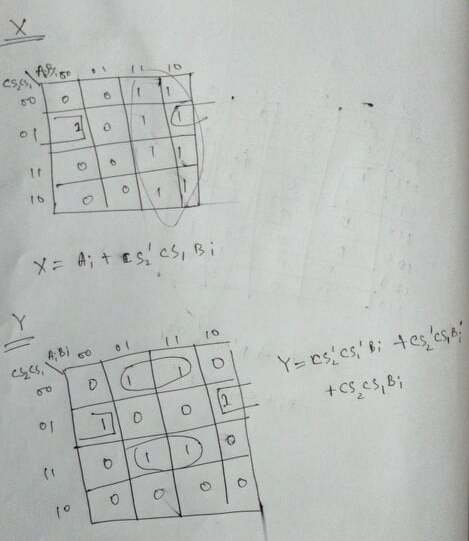 X
CS₂CS₁ AᵢBᵢ 00 01 11 10
00 0 0 1 1
01 1 0 1 1
11 0 0 1 1
10 0 0 1 1
X = Aᵢ + CS₂' CS₁ Bᵢ
Y
CS₂CS₁ AᵢBᵢ 00 01 11 10
00 0 1 1 0
01 1 0 0 1
11 0 1 1 0
10 0 0 0 0
Y = CS₂' CS₁' Bᵢ + CS₂' CS₁ Bᵢ'
+ CS₂ CS₁ Bᵢ